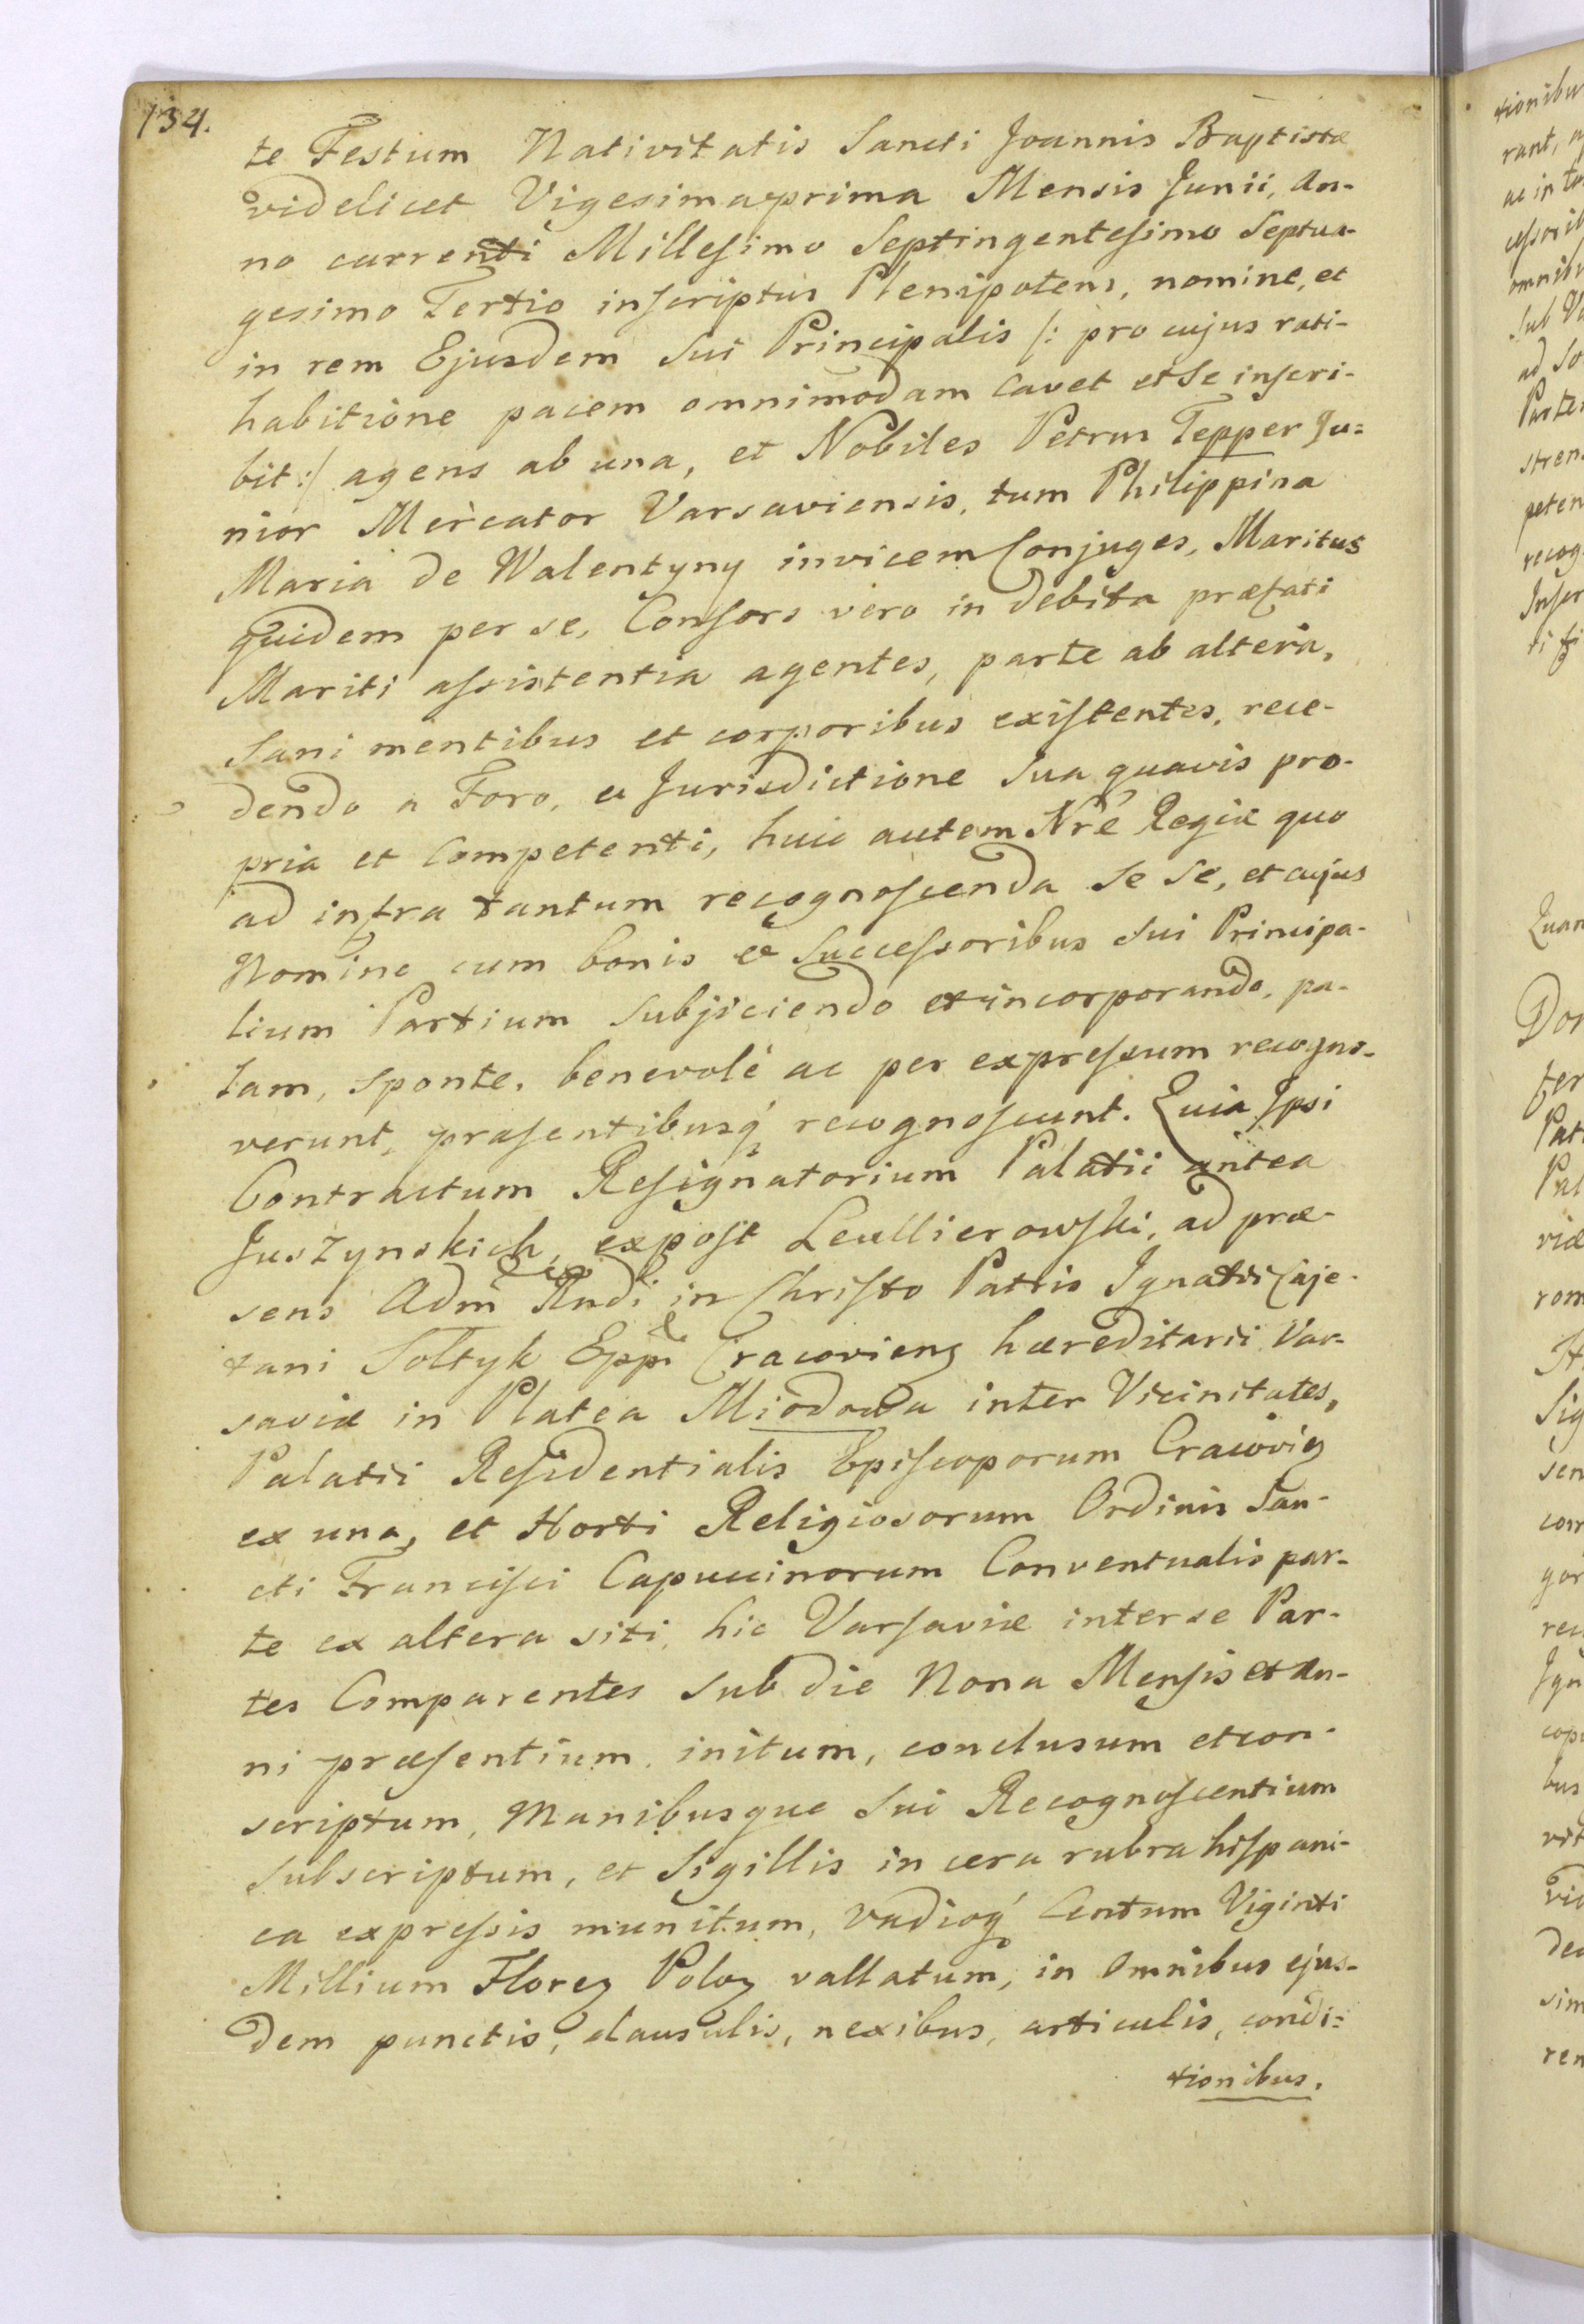 134.
te Festum Nativitatis Sancti Joannis Baptistæ
videlicet Vigesimaprima Mensis Junii, An-
no currenti Millesimo Septingentesimo Septua-
gesimo Tertio inscriptus Plenipotens, nomine, et
in rem Ejusdem sui Principalis /: pro cujus rati-
habitione pacem omnimodam cavet et se inscri-
bit :/ agens ab una, et Nobiles Petrus Tepper Ju=
nior Mercator Varsaviensis, tum Philippina
Maria de Walentyny invicem Conjuges, Maritus
quidem per se, Consors vero in debita præfati
Mariti assistentia agentes, parte ab altera,
Sani mentibus et corporibus existentes, rece-
dendo a Foro, et Jurisdictione sua quavis pro-
pria et Competenti, huic autem Nrê Regiæ quo
ad infra tantum recognoscenda se se, et cujus
Nomine cum bonis et Successoribus sui Principa-
lium Partium subjiciendo et incorporando, pa-
lam, sponte, benevolè ac per expressum recogno-
verunt, præsentibusq́ recognoscunt. Quia Ipsi
Contractum Resignatorium Palatii antea
Juszynskich, expost Leullierowski, ad præ-
sens Adm̃ Rndi in Christo Patris Ignatii Caje-
tani Sołtyk Eppi Cracovieny hæreditarii Var-
saviæ in Platea Miodowa inter Vicinitates,
Palatii Residentialis Episcoporum Cracoviey
ex una, et Horti Religiosorum Ordinis San-
cti Francisci Capucinorum Conventualis par-
te ex altera siti, hic Varsaviæ inter se Par-
tes Comparentes sub die Nona Mensis et An-
ni præsentium, initum, conclusum et con-
scriptum, Manibusque sui Recognoscentium
subscriptum, et Sigillis in cera rubra hispani-
ca expressis munitum, vadioq́ Centum Viginti
Millium Florey Poloy vallatum, in Omnibus ejus-
dem punctis, clausulis, nexibus, articulis, condi=
tionibus.